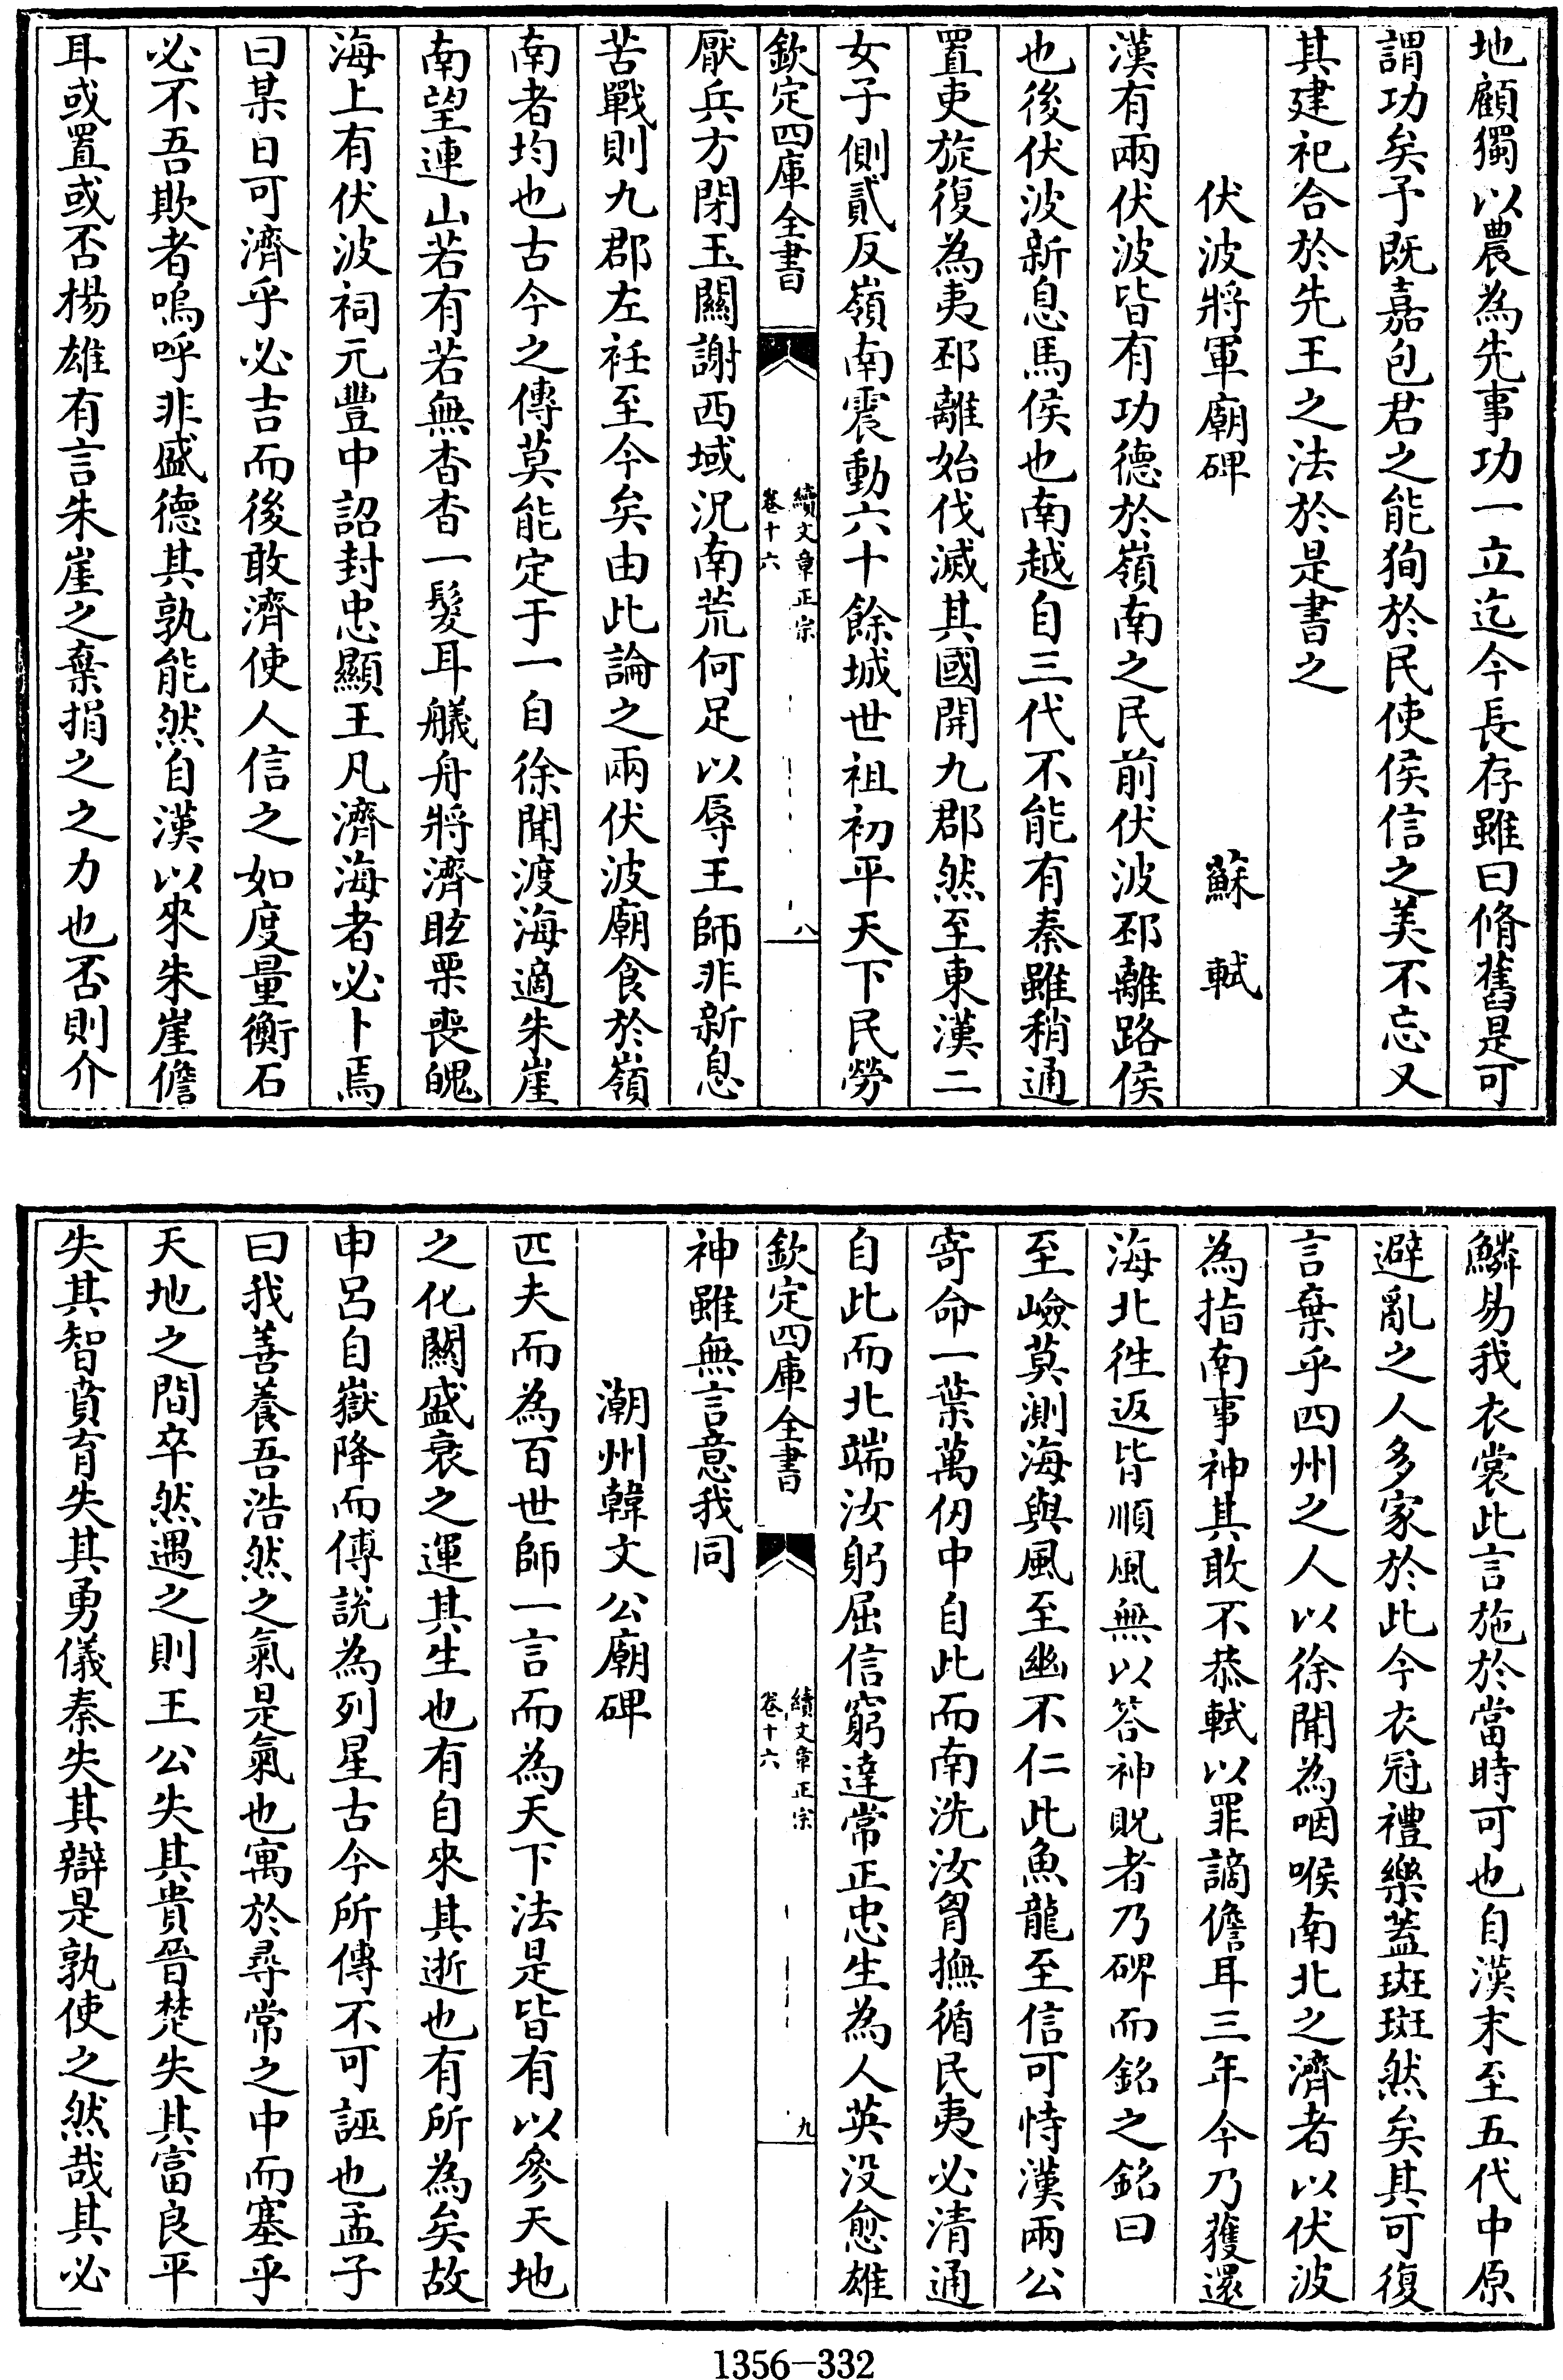 地顧獨以農為先事功一立迄今長存雖曰脩舊是可
謂功矣予既嘉包君之能狥於民使侯信之美不忘又
其建祀合於先王之法於是書之
伏波將軍廟碑　蘇軾
漢有兩伏波皆有功德於嶺南之民前伏波邳離路侯
也後伏波新息馬侯也南越自三代不能有秦雖稍通
置吏旋復為夷邳離始伐滅其國開九郡然至東漢二
女子側貳反嶺南震動六十餘城世祖初平天下民勞
欽定四庫全書
續文章正宗
卷十六
八
厭兵方閉玉關謝西域況南荒何足以辱王師非新息
苦戰則九郡左衽至今矣由此論之兩伏波廟食於嶺
南者均也古今之傳莫能定于一自徐聞渡海適朱崖
南望連山若有若無杳杳一髮耳艤舟將濟眩栗喪魄
海上有伏波祠元豐中詔封忠顯王凡濟海者必卜焉
曰某日可濟乎必吉而後敢濟使人信之如度量衡石
必不吾欺者嗚呼非盛德其孰能然自漢以來朱崖儋
耳或置或否楊雄有言朱崖之棄捐之之力也否則介
鱗易我衣裳此言施於當時可也自漢末至五代中原
避亂之人多家於此今衣冠禮樂蓋斑斑然矣其可復
言棄乎四州之人以徐聞為咽喉南北之濟者以伏波
為指南事神其敢不恭軾以罪謫儋耳三年今乃獲還
海北徃返皆順風無以答神貺者乃碑而銘之銘曰
至嶮莫測海與風至幽不仁此魚龍至信可恃漢兩公
寄命一葉萬仭中自此而南洗汝胷撫循民夷必清通
自此而北端汝躬屈信窮達常正忠生為人英没愈雄
欽定四庫全書
續文章正宗
卷十六
九
神雖無言意我同
潮州韓文公廟碑
匹夫而為百世師一言而為天下法是皆有以參天地
之化關盛衰之運其生也有自來其逝也有所為矣故
申呂自嶽降而傅說為列星古今所傳不可誣也孟子
曰我善養吾浩然之氣是氣也寓於尋常之中而塞乎
天地之間卒然遇之則王公失其貴晉楚失其富良平
失其智賁育失其勇儀秦失其辯是孰使之然哉其必
1356-332